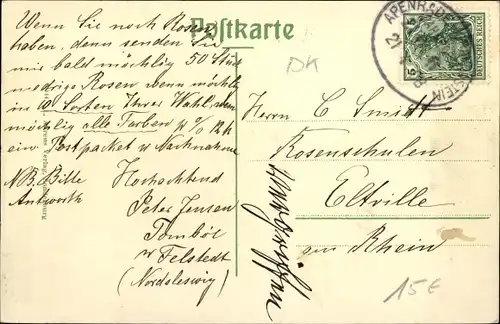 Postkarte
Wenn Sie noch Rosen
haben, denn senden Sie
mir bald möchlig 50 Stück
niedrige Rosen wenn möchlig
in 10 Sorten Ihres Wahl
möchlig alle Farben
ein Postpacket Nachnahme
NB. Bitte
Antworth
Hochachtend
Peter Jensen
Tombøl
Felstedt
(Nordsleswig)
DK
APENRADE
5 5
DEUTSCHES REICH
Herrn C Smidt
Rosenschulen
Eltville
am Rhein
15€